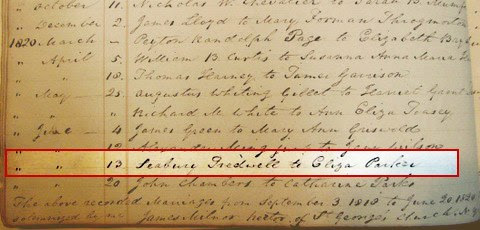 " October 11. Nicholas W. Chevalier to Sarah B. Mump
" December 2. James Lloyd to Mary Forman Throgmorton
1820 March " Peyton Randolph Page to Elizabeth
" April 5. William B. Curtis to Susanna Anna Maria
" " 18. Thomas to Garrison
" May 25. Augustus Whiting to Harriet
" " " Richard M. White to Ann Eliza
" June 4. James Green to Mary Ann Griswold
" " 12. to Jane Wilson
" " 13. Seabury Tredwell to Eliza Parker
" " 20. John Chambers to Catharine Parks
The above recorded Marriages from September 3, 1818 to June 20, 1820
solemnized by me James Milnor Rector of St George's Church N. Y.